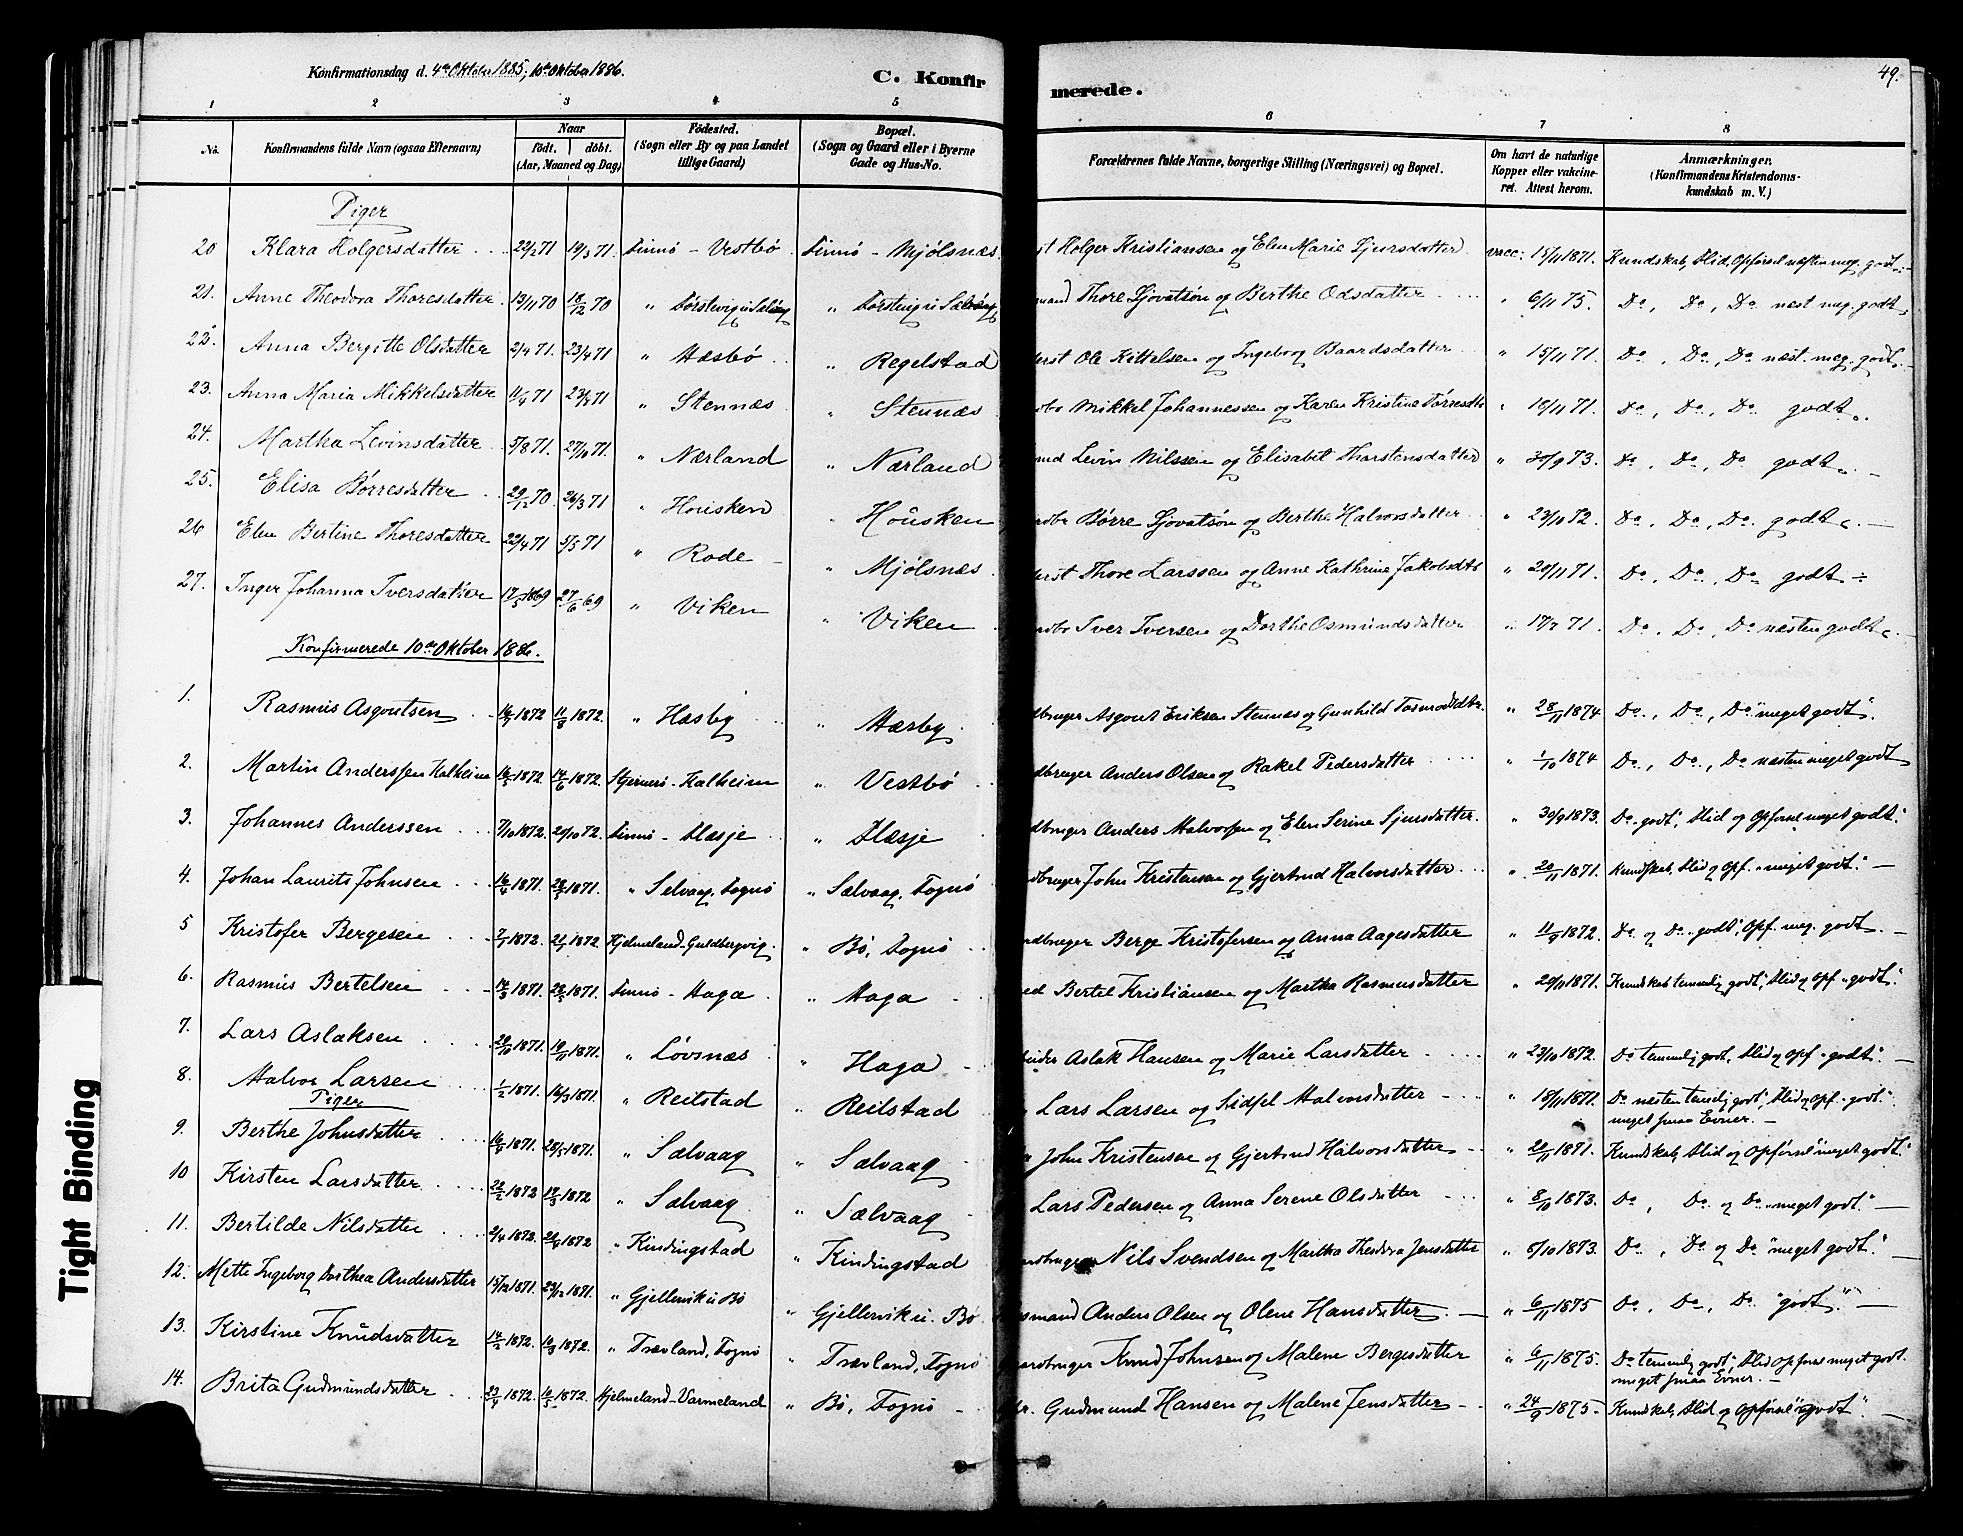 Konfirmationsdag d. 4de Oktober 1885, 10de Oktober 1886.
C. Konfirmerede.
49.
1 2 3 4 5 6 7 8
No. Konfirmandens fulde Navn (ogsaa Efternavn) Naar født. døbt. (Aar, Maaned og Dag) Fødested. (Sogn eller By og paa Landet tillige Gaard) Bopæl. (Sogn og Gaard eller i Byerne Gade og Hus-No. Forældrenes fulde Navne, borgerlige Stilling (Næringsvei) og Bopæl. Om havt de naturlige Kopper eller vakcineret. Attest herom. Anmærkninger. (Konfirmandens Kristendomskundskab m. V.)
Piger
20 Klara Holgersdatter 22/2 71 19/3 71 Finnø - Vestbø Finnø - Mjølsnæs Holger Kristiansen og Elen Marie Sjursdatter vacc: 15/11 1871. Kundskab, Flid, Opførsel næsten meg. godt
21. Anne Theodora Thoresdatter 13/11 70 18/12 70 " " Thore Sjovatsøn og Berthe Odsdatter " 6/11 75. Do, Do, Do næst meg. godt
22. Anna Bergitte Olsdatter 2/4 71. 23/4 71 " Hæsbø " Regelstad Ole Kittelsen og Ingeborg Baardsdatter " 15/11 71. Do, Do, Do næst. meg. godt
23. Anna Maria Mikkelsdatter 11/4 71 23/5 71 " Stennæs " Stennæs Mikkel Johannessen og Karen Kristine Tørresdtr " 18/11 71. Do, Do, Do godt.
24. Martha Levinsdatter 5/8 71. 27/10 71. " Nærland " Nærland Levin Nilssen og Elisabet Thorstensdatter " 30/9 73. Do, Do, Do godt
25. Elisa Børresdatter 29/12 70 26/3 71 " Housken " Housken Børre Sjovatsøn og Berthe Halvorsdatter " 23/10 72. Do, Do, Do. godt
26 Elen Bertine Thoresdatter 22/4 71 5/5 71 " Rode " Mjølsnæs Thore Larssen og Anne Kathrine Jakobsdtr " 20/11 71. Do, Do, Do godt
27. Inger Johanna Iversdatter 17/5 1869 27/6 69 " Viken " Viken Iver Iversen og Dorthe Osmundsdatter " 17/7 71. Do, Do, Do næsten godt
Konfirmerede 10de Oktober 1886.
1. Rasmus Asgoutsen 14/7 1872 11/8 1872. " Hæsby " Hæsby Asgout Eriksen Stennæs og Gunhild " 28/11 1874 Do, Do, Do "meget godt".
2. Martin Anderssen Kalheim 16/5 1872 14/6 1872. Stjernerø - Kalheim " Vestbø Anders Olsen og Rakel Pedersdatter " 1/10 1874 Do, Do, Do næsten meget godt
3. Johannes Anderssen 7/10 1872. 29/10 72. Finnø - Flesje " Flesje Anders Halvorsen og Elen Serine Sjursdatter. " 30/9 1873. Do godt", Flid og Opførsel meget godt."
4. Johan Laurits Johnsen 16/4 1871. 28/5 1871. " Selvaag, Fognø " Sælvaag, Fognø John Kristensen og Gjertrud Halvorsdatter " 20/11 1871. Kundskab, Flid og Opf. "meget godt."
5 Kristofer Bergesen 7/1 1872. 21/1 1872. Hjelmeland - Guldbergvig. " Bø, Fognø Berge Kristofersen og Anna Aagesdatter " 11/9 1872. Do og Do godt", Opf. meg. godt.
6. Rasmus Bertelsen 14/3 1871. 28/5 1871. Finnø - Haga " Haga Bertel Kristiansen og Martha Rasmusdatter " 20/11 1871. Kundskab temmelig godt", Flid og Opf. "godt".
7. Lars Aslaksen 20/10 1871. 19/11 1871. " Løvsnæs " Haga Aslak Hansen og Marie Larsdatter " 23/10 1872. Do temmelig godt, Flid og Opf. "godt".
8. Halvor Larsen 1/2 1871. 16/3 1871. " Reilstad " Reilstad Lars Larsen og Sidsel Halvorsdatter " 18/11 1871. Do næsten temmelig godt", Flid og Opf. "godt".
meget smaa Evner.
Piger
9. Berthe Johnsdatter 16/4 1871. 28/5 1871. " Sælvaag " Sælvaag John Kristensen og Gjertrud Halvorsdatter " 20/11 1871. Kundskab, Flid og Opførsel "meget godt".
10 Kirsten Larsdatter 22/2 1872 17/3 1872 " Sælvaag " Sælvaag Lars Pedersen og Anna Serene Olsdatter " 8/10 1873. Do, Do og Do "meget godt".
11. Bertilde Nilsdatter 2/4 1872. 1872 " Kindingstad " Kindingstad Nils Svendsen og Martha Theodora Jensdatter " 8/10 1873. Do, Do og Do "meget godt".
12. Mette Ingeborg Dorthea Andersdatter 15/12 1871. 29/12 1871. " Gjellervik u Bø " Gjellervik u. Bø Anders Olsen og Olene Hansdatter " 6/11 1875 Do, Do, Do "godt".
13. Kirstine Knudsdatter 14/2 1872. 10/3 1872. " Trævland, Fognø " Trævland, Fognø Knud Johnsen og Malene Bergesdatter " 6/11 1875. Do temmelig godt", Flid Opførsel meget godt.
meget smaa Evner.
14. Brita Gudmundsdatter 23/4 1872. 10/5 1872. Hjelmeland - Varmeland " Bø, Fognø Gudmund Hansen og Malene Jensdatter " 24/9 1875 Kundskab, Flid og Opførsel "godt".
Tight Binding